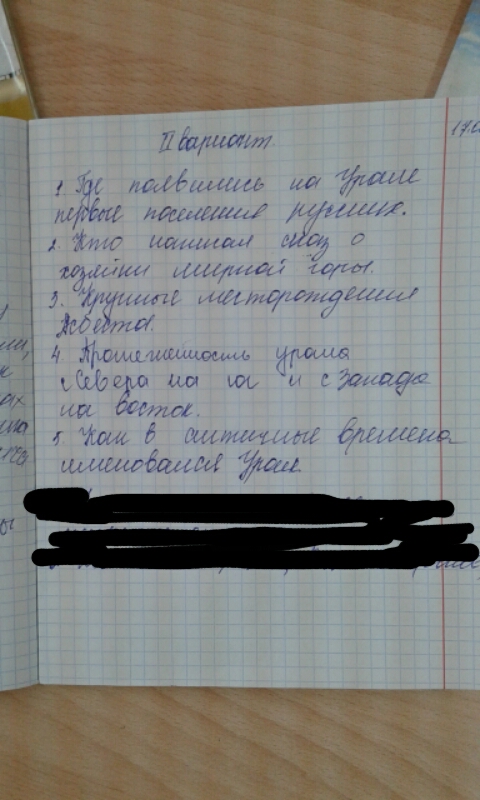 II вариант.
17.0
1. Где появились на Урале
первые поселения русских.
2. Кто написал сказ о
хозяйки мирной горы.
3. Крупные месторождения
Асбеста.
4. Протяженность урала
с Севера на юг и с Запада
на восток.
5. Как в античные времена
именовался Урал